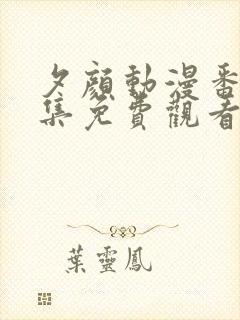 夕顏動漫番
集免費觀看
葉靈鳳